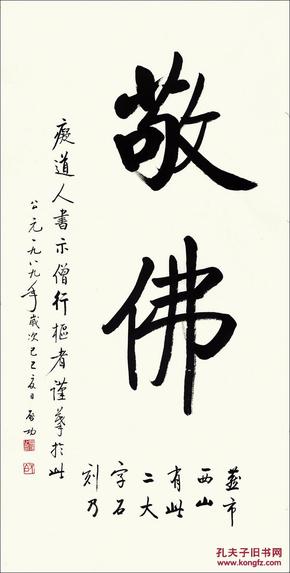 敬佛
燕市
西山
有此
二大
字石
刻乃
癡道人書示僧行樞者謹摹於此
公元一九八九年歲次己巳夏日 啟功
孔夫子旧书网
www.kongfz.com